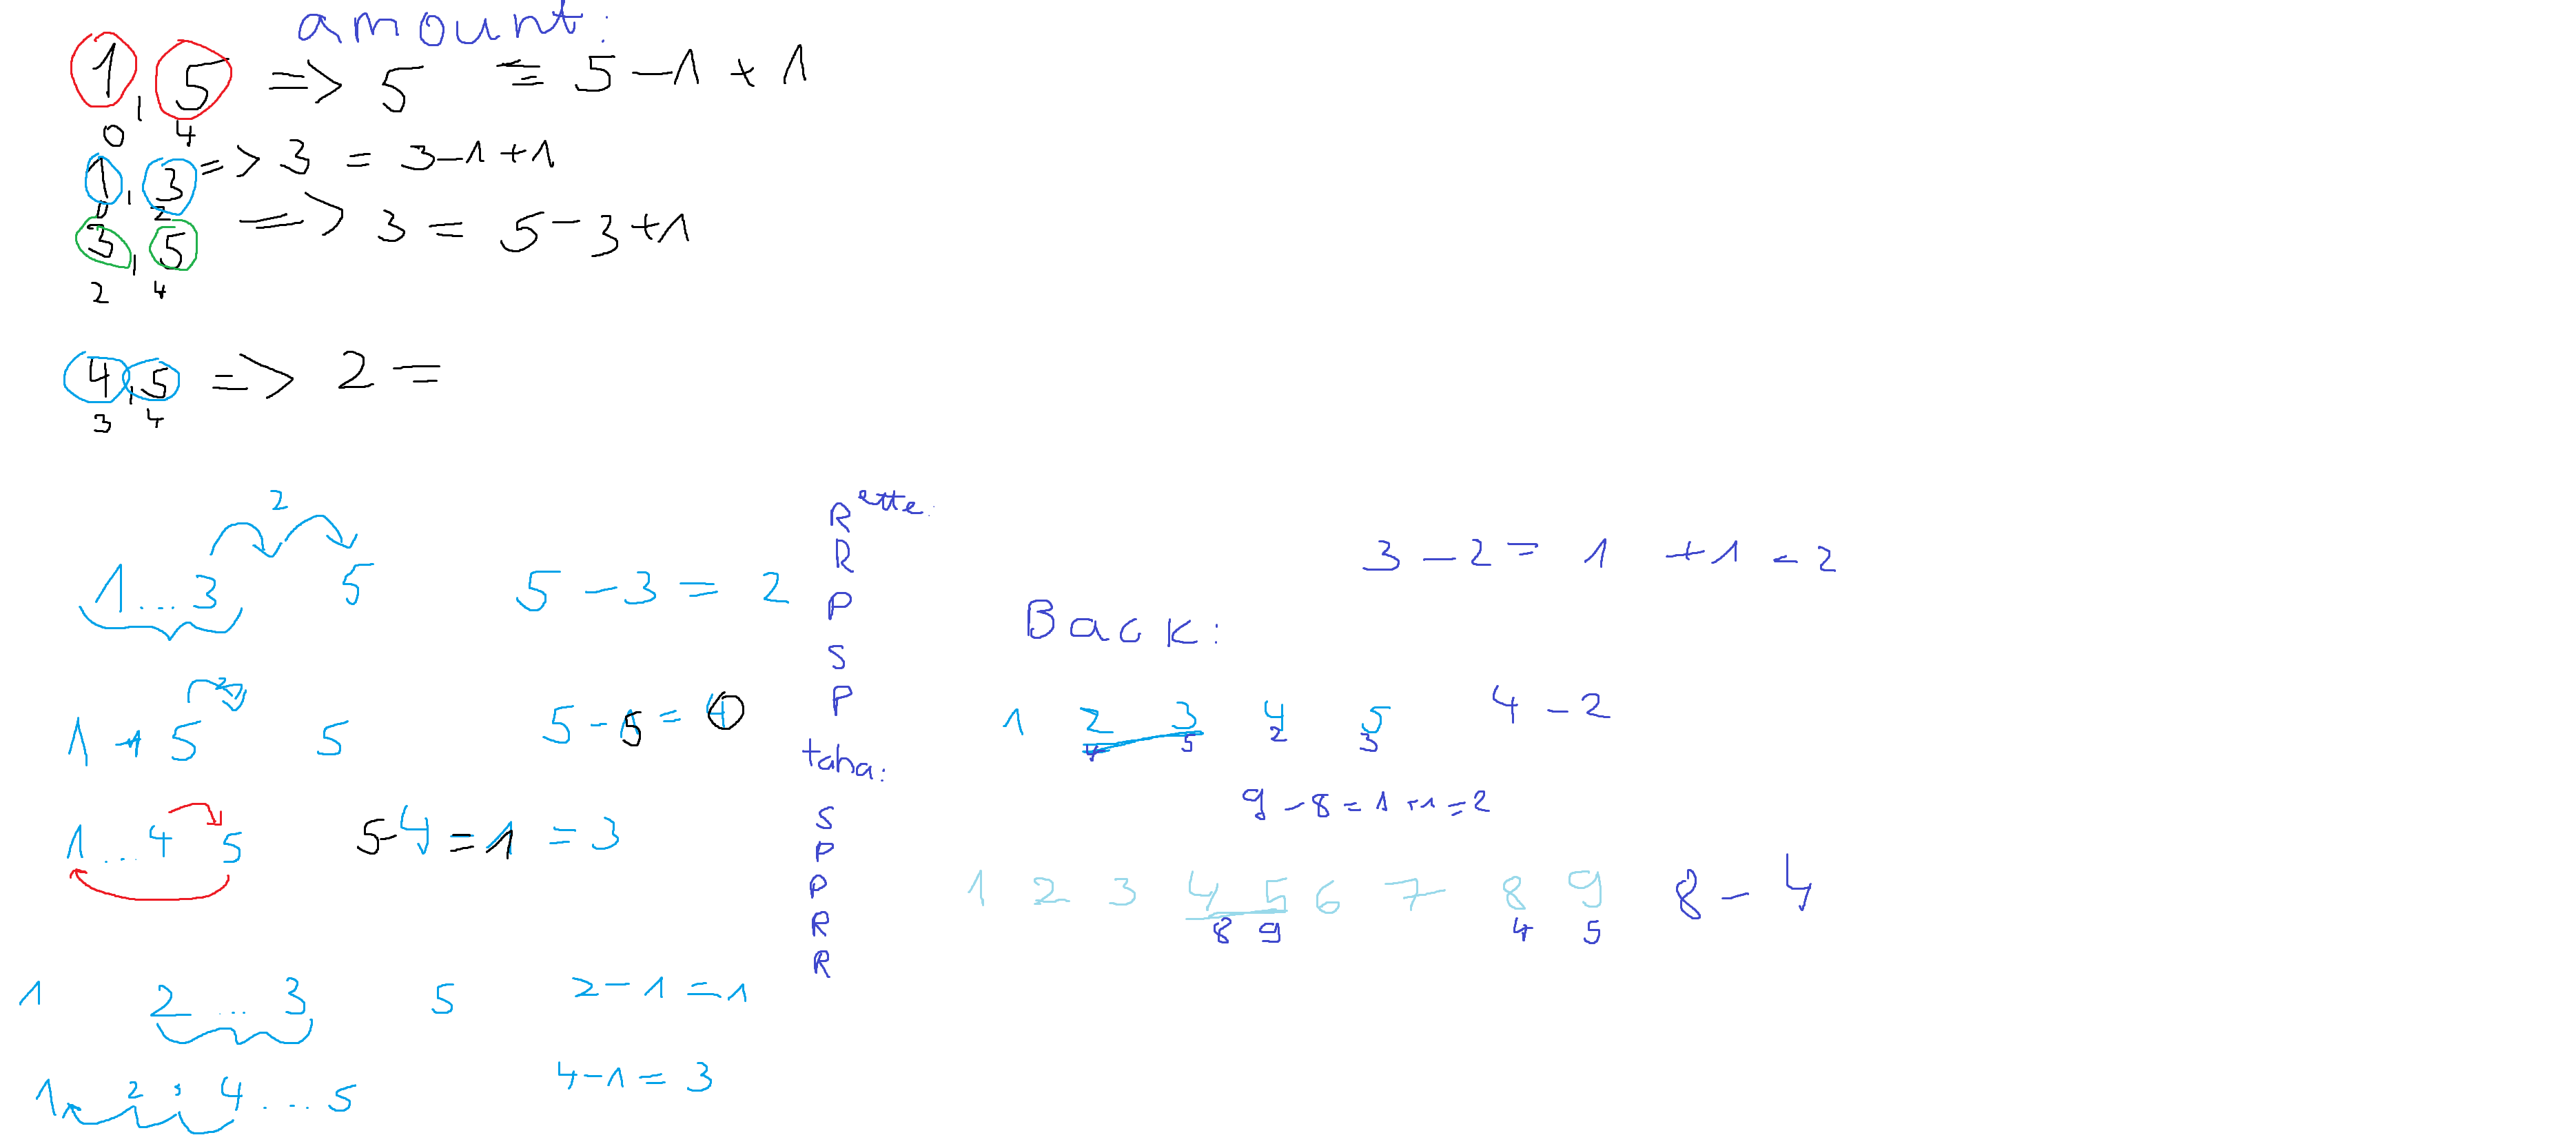 amount:
1, 5 => 5 = 5 - 1 + 1
0 4
1, 3 => 3 = 3 - 1 + 1
0 2
3, 5 => 3 = 5 - 3 + 1
2 4
4, 5 => 2 =
3 4
2
1 ... 3 5 5 - 3 = 2
1 5 5 5 - 5 = 0
1 ... 4 5 5 - 4 = 1 = 3
1 2 ... 3 5 2 - 1 = 1
1 2 3 4 ... 5 4 - 1 = 3
Rette:
R
P
S
P
taha:
S
P
P
R
R
3 - 2 = 1 + 1 = 2
Back:
1 2 3 4 5 4 - 2
4 5 2 3
9 - 8 = 1 + 1 = 2
1 2 3 4 5 6 7 8 9 8 - 4
8 9 4 5